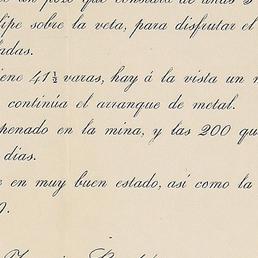 un pozo que constará de unas
lipe sobre la veta, para disfrutar el
adas.
iene 41½ varas, hay á la vista un
continúa el arranque de metal.
penado en la mina, y las 200 qu
dias.
e en muy buen estado, así como la
0.